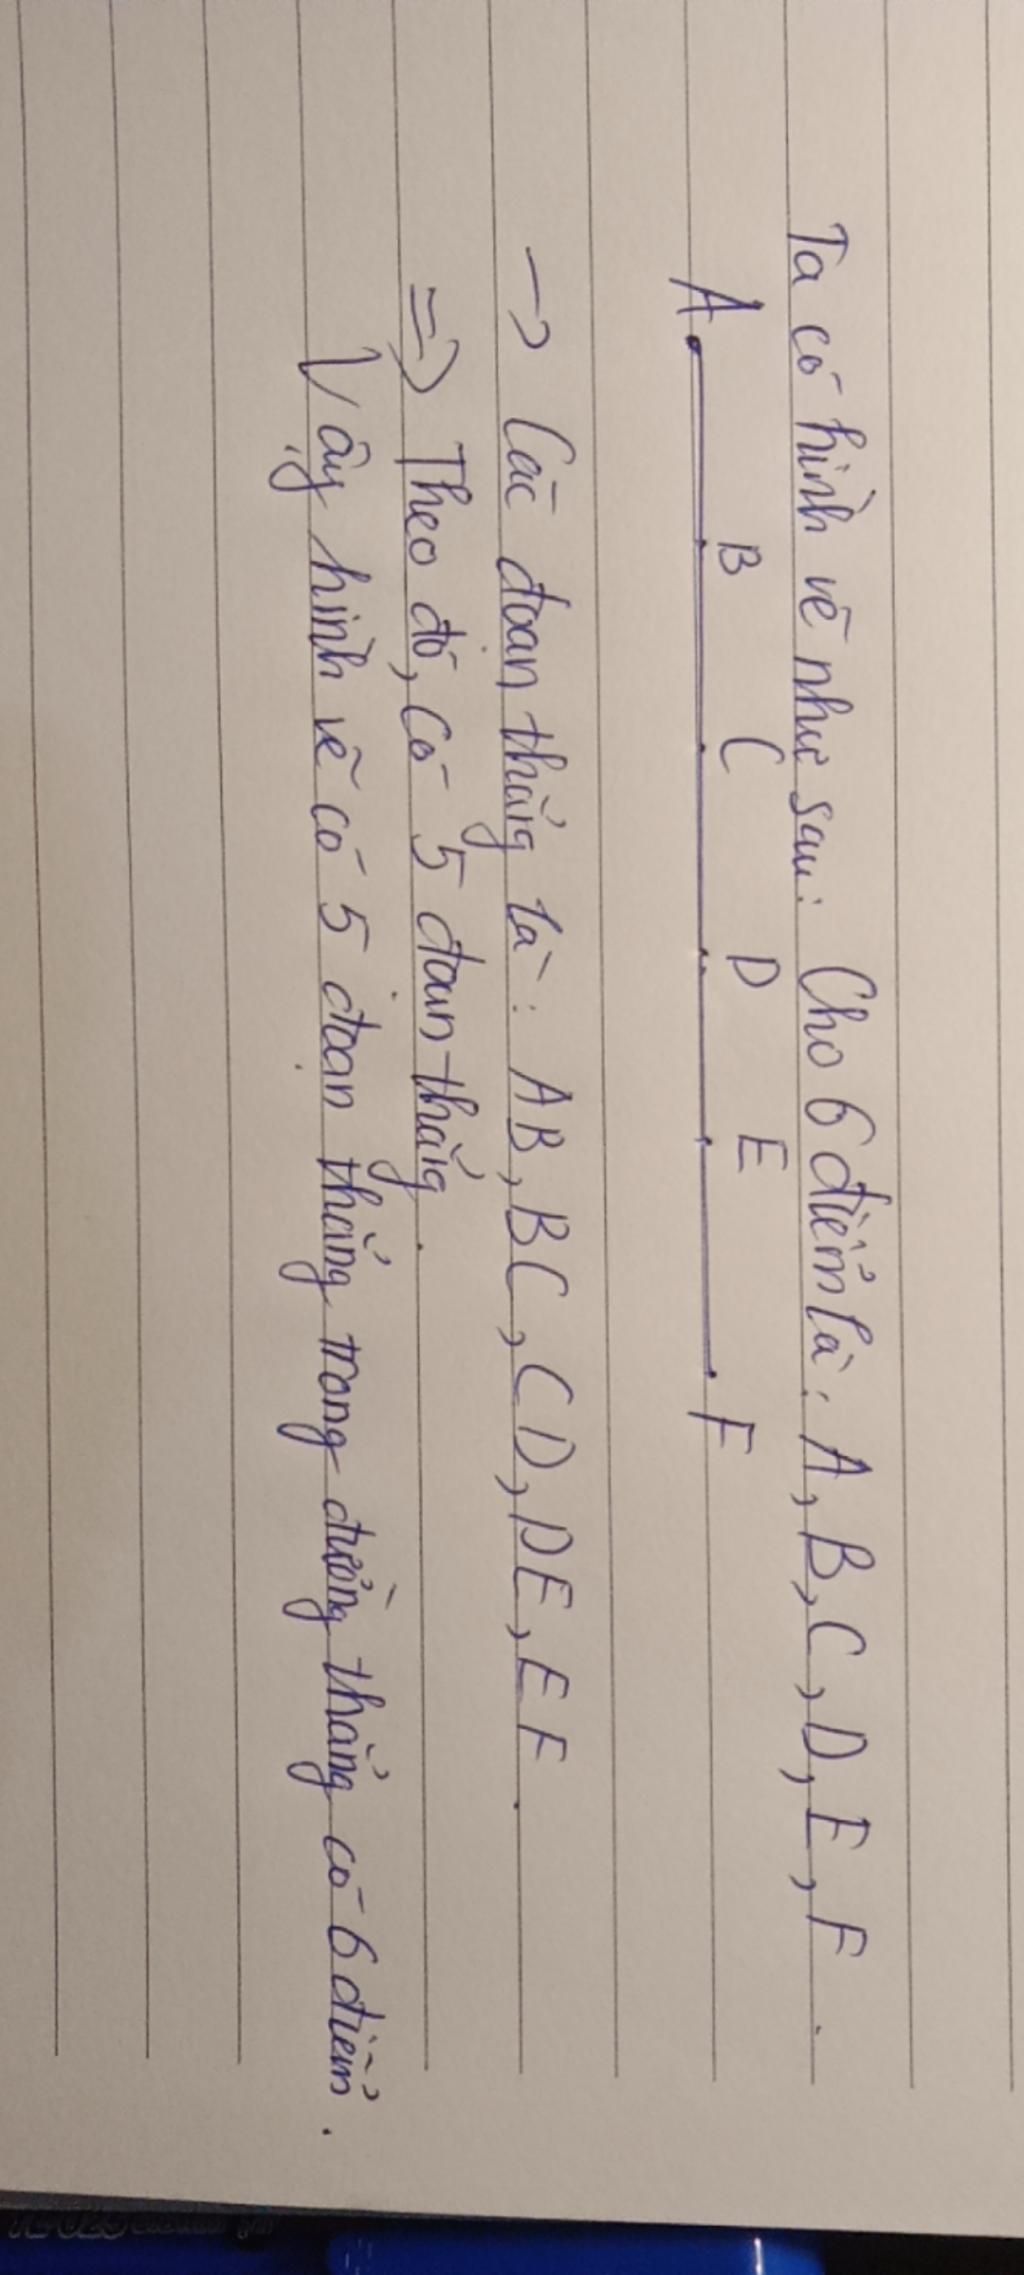 Ta có hình vẽ như sau: Cho 6 điểm là: A, B, C, D, E, F.
A B C D E F
→ Các đoạn thẳng là: AB, BC, CD, DE, EF.
=> Theo đó, có 5 đoạn thẳng.
Vậy hình vẽ có 5 đoạn thẳng trong đường thẳng có 6 điểm.